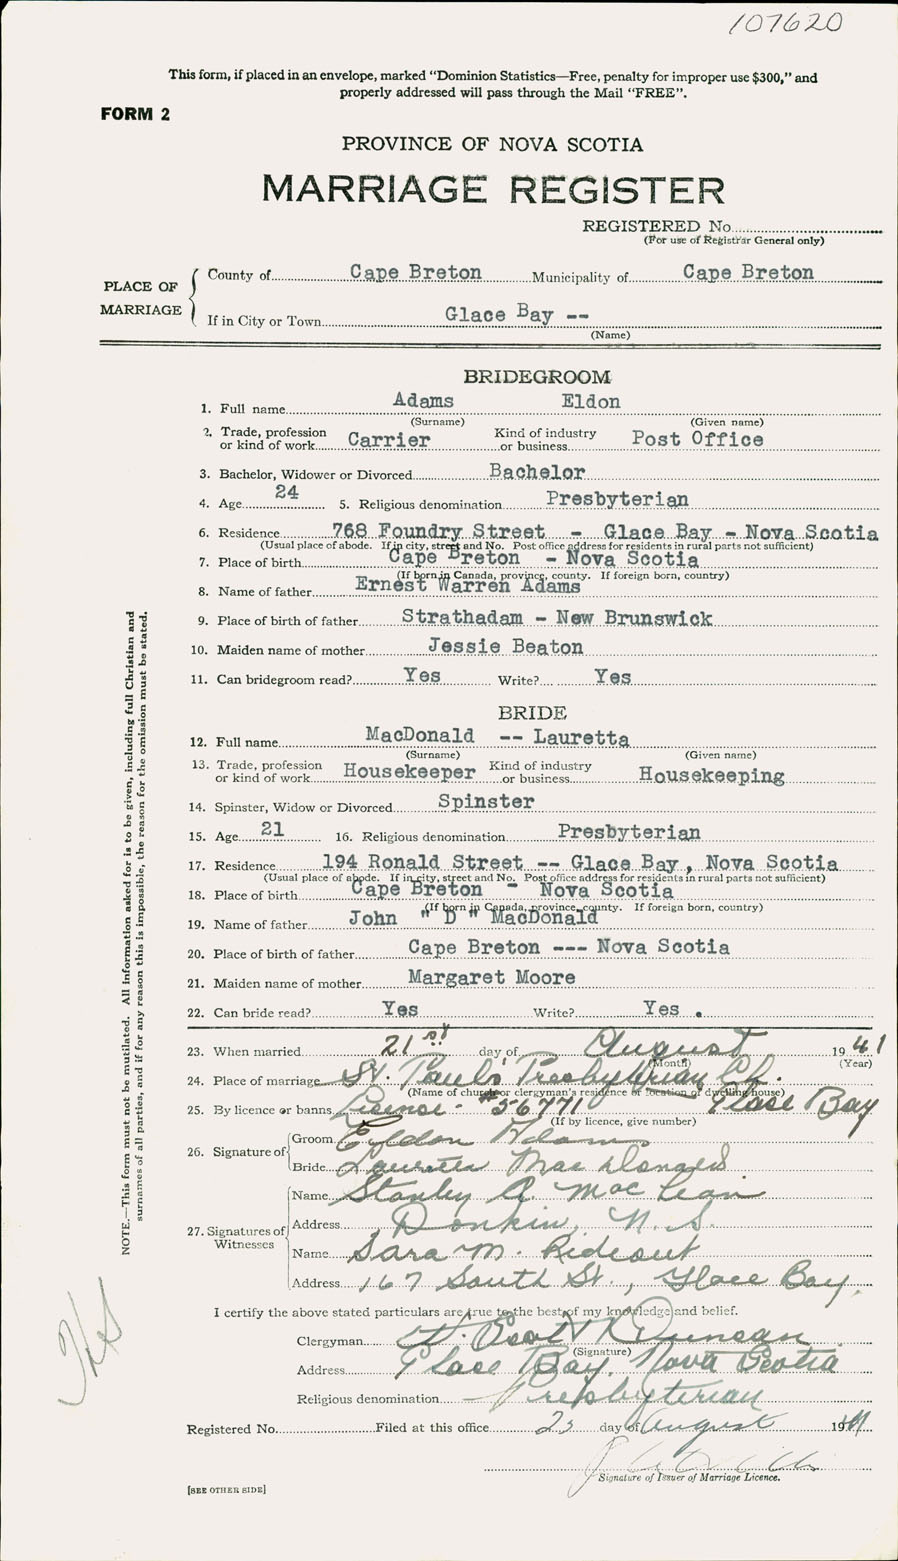 107620
This form, if placed in an envelope, marked “Dominion Statistics—Free, penalty for improper use $300,” and
properly addressed will pass through the Mail “FREE”.
FORM 2
PROVINCE OF NOVA SCOTIA
MARRIAGE REGISTER
REGISTERED No.
(For use of Registrar General only)
PLACE OF MARRIAGE
County of Cape Breton Municipality of Cape Breton
If in City or Town Glace Bay --
(Name)
BRIDEGROOM
1. Full name Adams Eldon
(Surname) (Given name)
2. Trade, profession or kind of work Carrier Kind of industry or business Post Office
3. Bachelor, Widower or Divorced Bachelor
4. Age 24 5. Religious denomination Presbyterian
6. Residence 768 Foundry Street - Glace Bay - Nova Scotia
(Usual place of abode. If in city, street and No. Post office address for residents in rural parts not sufficient)
7. Place of birth Cape Breton - Nova Scotia
(If born in Canada, province, county. If foreign born, country)
8. Name of father Ernest Warren Adams
9. Place of birth of father Strathadam - New Brunswick
10. Maiden name of mother Jessie Beaton
11. Can bridegroom read? Yes Write? Yes
BRIDE
12. Full name MacDonald -- Lauretta
(Surname) (Given name)
13. Trade, profession or kind of work Housekeeper Kind of industry or business Housekeeping
14. Spinster, Widow or Divorced Spinster
15. Age 21 16. Religious denomination Presbyterian
17. Residence 194 Ronald Street -- Glace Bay, Nova Scotia
(Usual place of abode. If in city, street and No. Post office address for residents in rural parts not sufficient)
18. Place of birth Cape Breton - Nova Scotia
(If born in Canada, province, county. If foreign born, country)
19. Name of father John "D" MacDonald
20. Place of birth of father Cape Breton --- Nova Scotia
21. Maiden name of mother Margaret Moore
22. Can bride read? Yes Write? Yes .
23. When married 21st day of August 1941
(Month) (Year)
24. Place of marriage St. Paul's Presbyterian Ch.
(Name of church or clergyman's residence or location of dwelling house)
25. By licence or banns License - #56771 Glace Bay
(If by licence, give number)
26. Signature of Groom Eyldon Adams
Bride Lauretta MacDonald
27. Signatures of Witnesses
Name Stanley A. MacLean
Address Donkin, N.S.
Name Sara M. Rideout
Address 167 South St., Glace Bay.
I certify the above stated particulars are true to the best of my knowledge and belief.
Clergyman Duncan
(Signature)
Address Glace Bay, Nova Scotia
Religious denomination Presbyterian
Registered No. Filed at this office 23 day of August 1941
Signature of Issuer of Marriage Licence.
[SEE OTHER SIDE]
NOTE.—This form must not be mutilated. All information asked for is to be given, including full Christian and
surnames of all parties, and if for any reason this is impossible, the reason for the omission must be stated.